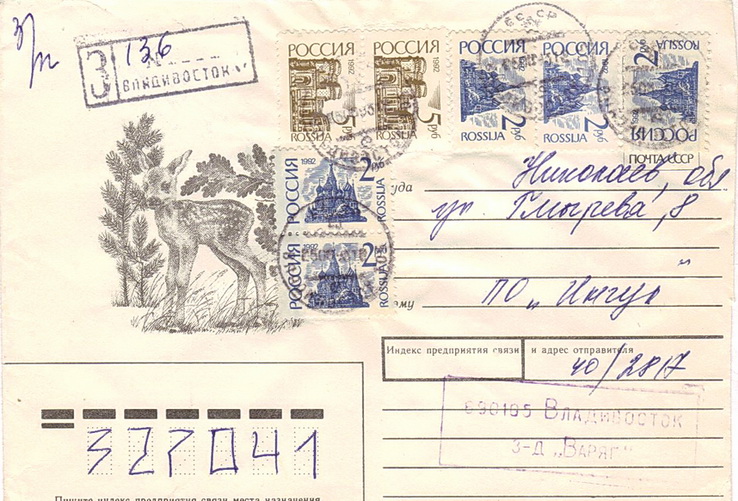 з/п
З 136
ВЛАДИВОСТОК
РОССИЯ 1992 5 руб ROSSIJA
РОССИЯ 1992 5 руб ROSSIJA
РОССИЯ 2 руб ROSSIJA
РОССИЯ 2 руб ROSSIJA
РОССИЯ 1992 2 ROSSIJA
ПОЧТА СССР
СССР
РОССИЯ 1992 2 руб ROSSIJA
РОССИЯ 1992 2 руб ROSSIJA
уда Николаев, обл
ул Гмырева, 8
ому ПО „Ингул"
Индекс предприятия связи и адрес отправителя
40/2817
690105 ВЛАДИВОСТОК
З-Д „ВАРЯГ"
327041
Пишите индекс предприятия связи места назначения